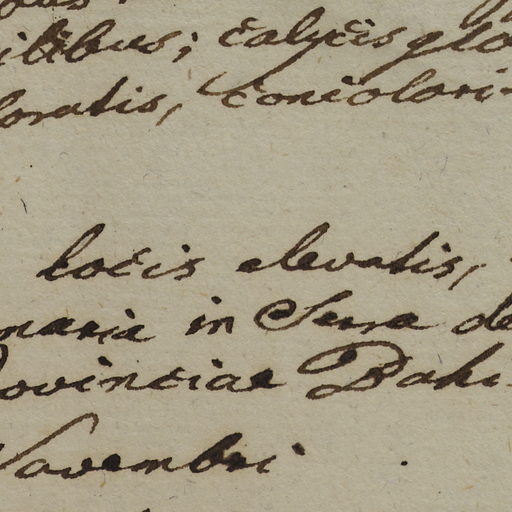 ilibus; calycis glo
loratis, concolori-
locis elevatis,
maria in Serra de
rovinciae Bahi
Novembri.